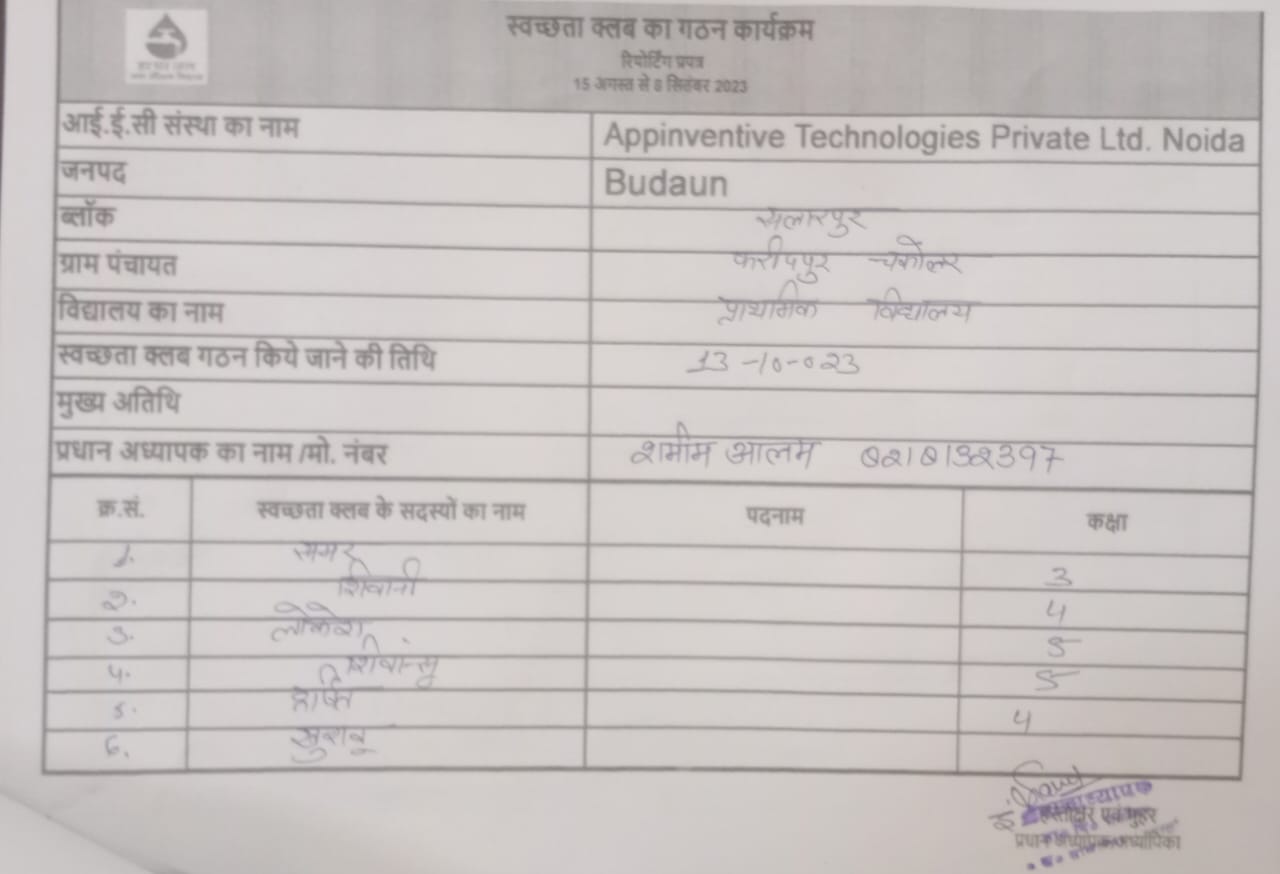 स्वच्छता क्लब का गठन कार्यक्रम
रिपोर्टिंग प्रपत्र
15 अगस्त से 8 सितंबर 2023
आई.ई.सी संस्था का नाम Appinventive Technologies Private Ltd. Noida
जनपद Budaun
ब्लॉक सलारपुर
ग्राम पंचायत फरीदपुर चकोलर
विद्यालय का नाम प्राथमिक विद्यालय
स्वच्छता क्लब गठन किये जाने की तिथि 13-10-023
मुख्य अतिथि
प्रधान अध्यापक का नाम /मो. नंबर शमीम आलम
क्र.सं. स्वच्छता क्लब के सदस्यों का नाम पदनाम कक्षा
1. समर 3
2. शिवानी 4
3. लोकेश 5
4. शिवांसू 5
5. 4
6. खुशबू
हस्ताक्षर एवं मुहर
प्रधान अध्यापक/अध्यापिका